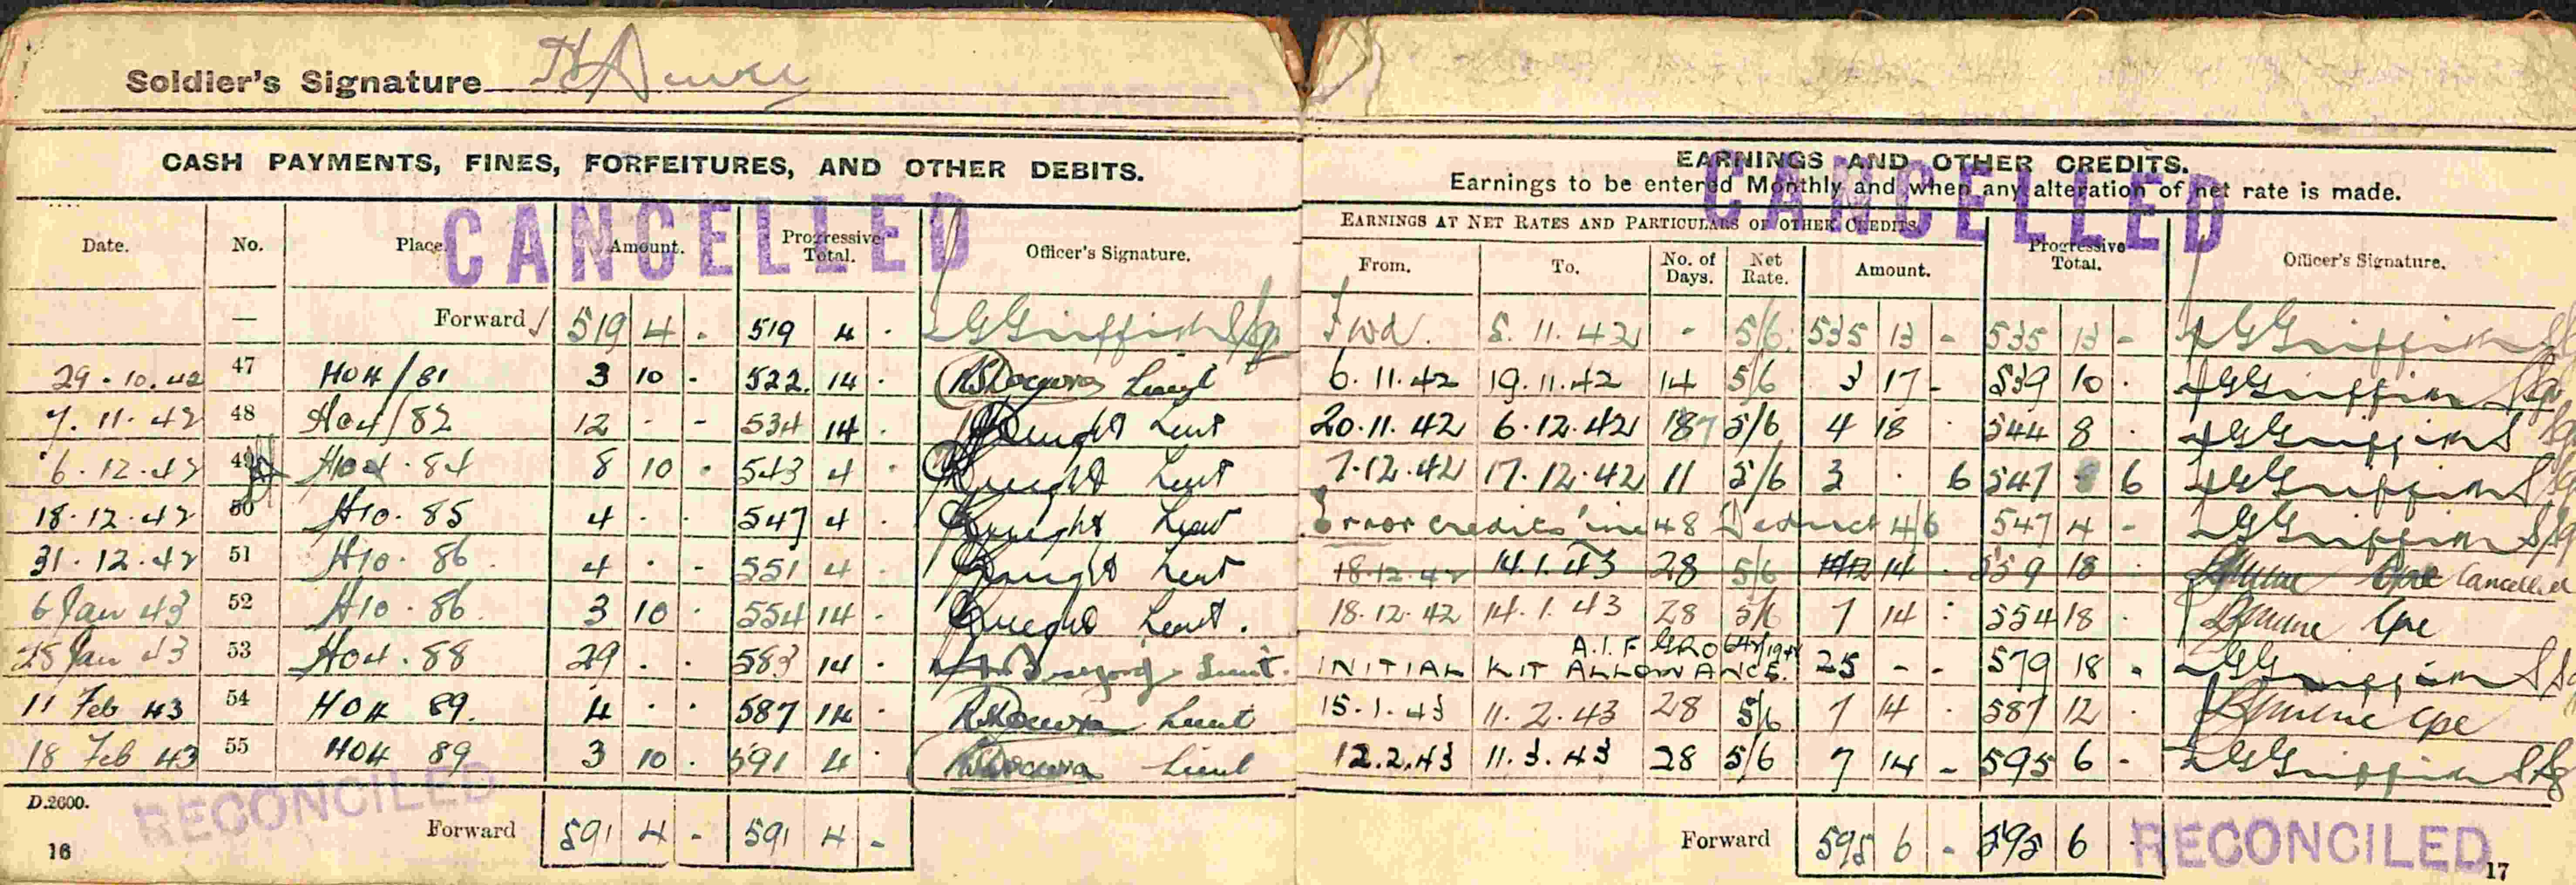 Soldier's Signature
CASH PAYMENTS, FINES, FORFEITURES, AND OTHER DEBITS.
CANCELLED
Date. No. Place. Amount. Progressive Total. Officer's Signature.
— Forward 519 4 - 519 4 - G Griffith
29.10.42 47 HO4/81 3 10 - 522 14 - Lieut
7.11.42 48 HO4/82 12 - - 534 14 - Lieut
6.12.42 49 HO4.84 8 10 - 543 4 - Lieut
18.12.42 50 H10.85 4 - - 547 4 - Lieut
31.12.42 51 H10.86 4 - - 551 4 - Lieut
6 Jan 43 52 H10.86 3 10 - 554 14 - Lieut.
25 Jan 43 53 HO4.88 29 - - 583 14 - Lieut.
11 Feb 43 54 HO4 89. 4 - - 587 14 - Lieut
18 Feb 43 55 HO4 89 3 10 - 591 4 - Lieut
RECONCILED
D.2600.
Forward 591 4 - 591 4 -
16
EARNINGS AND OTHER CREDITS.
Earnings to be entered Monthly and when any alteration of net rate is made.
CANCELLED
EARNINGS AT NET RATES AND PARTICULARS OF OTHER CREDITS.
From. To. No. of Days. Net Rate. Amount. Progressive Total. Officer's Signature.
Fwd. 5.11.42 - 5/6 535 13 - 535 13 - G Griffith
6.11.42 19.11.42 14 5/6 3 17 - 539 10 - G Griffith
20.11.42 6.12.42 187 5/6 4 18 - 544 8 - G Griffith
7.12.42 17.12.42 11 5/6 3 - 6 547 8 6 G Griffith
Error credits line 48 Deduct 4/6 547 4 - G Griffith
18.12.42 14.1.43 28 5/6 14 - 559 18 - Cpl Cancelled
18.12.42 14.1.43 28 5/6 7 14 - 554 18 - Cpl
A.I.F GRO
INITIAL KIT ALLOWANCE. 25 - - 579 18 - G Griffith
15.1.43 11.2.43 28 5/6 7 14 - 587 12 - Cpl
12.2.43 11.3.43 28 5/6 7 14 - 595 6 - G Griffith
Forward 595 6 - 595 6 -
RECONCILED
17